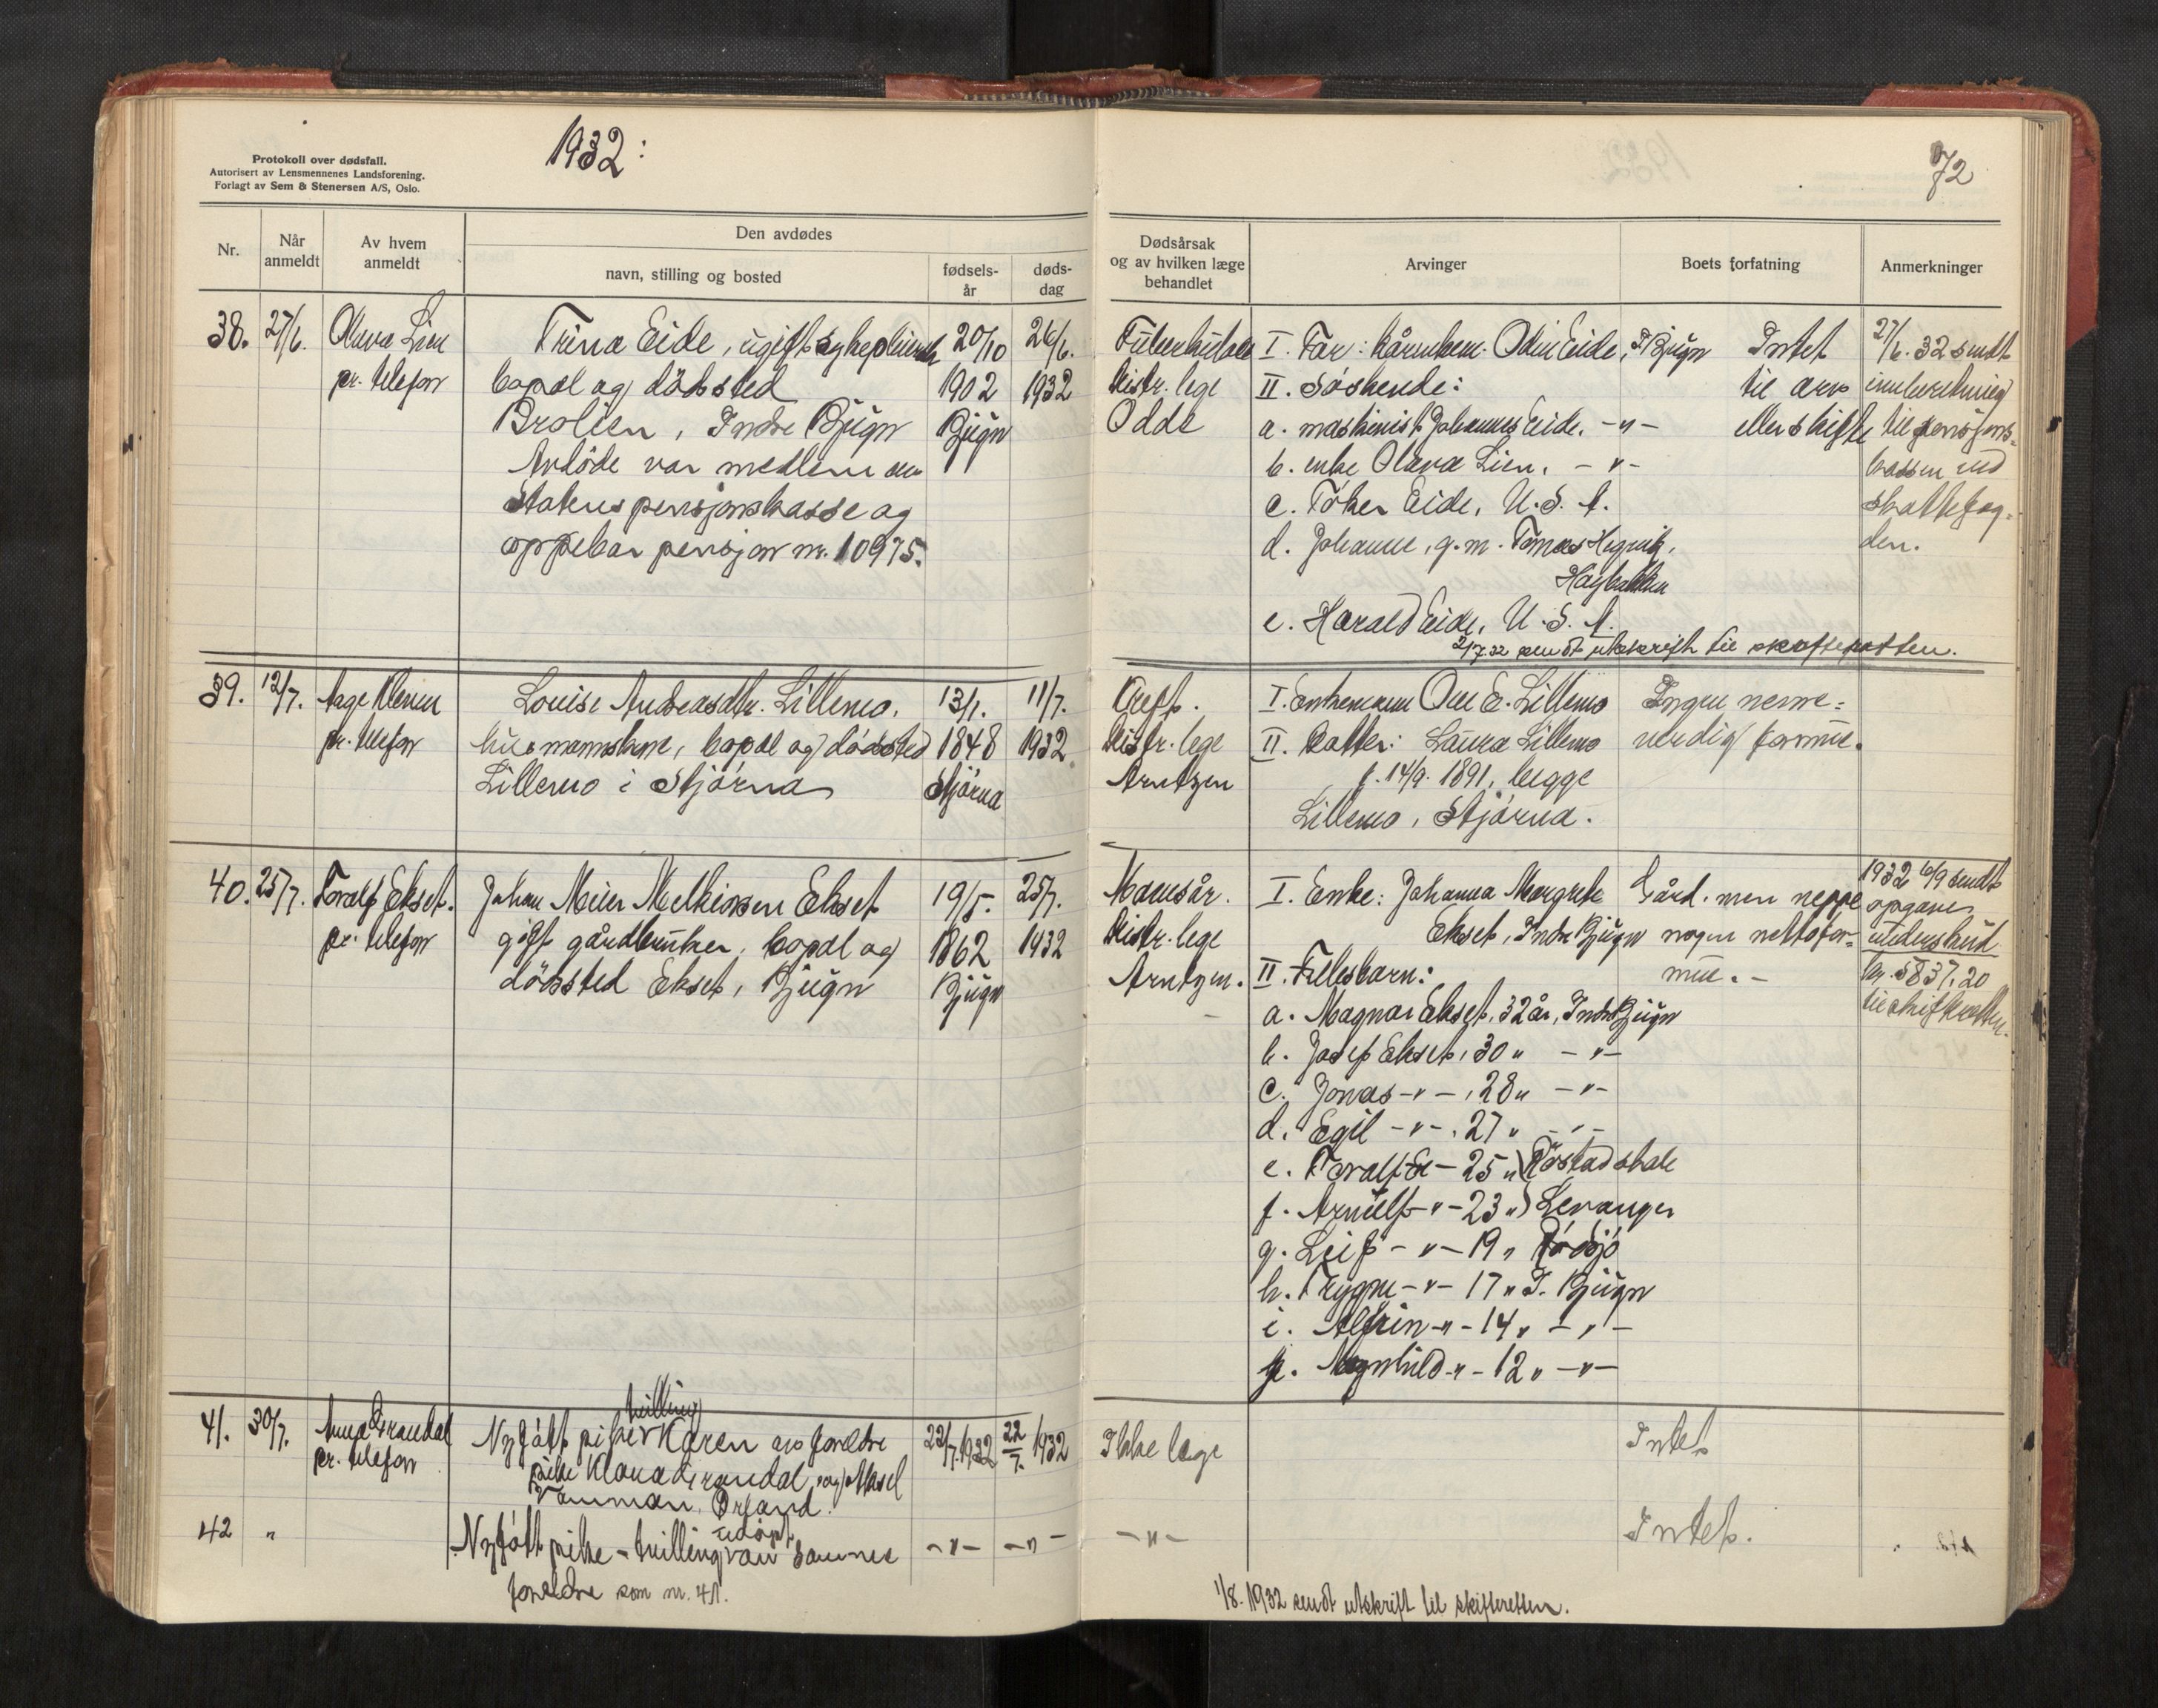 Protokoll over dødsfall.
Autorisert av Lensmennenes Landsforening.
Forlagt av Sem & Stenersen A/S, Oslo.
1932:
72
Nr.
Når anmeldt
Av hvem anmeldt
Den avdødes
navn, stilling og bosted
fødsels-år
døds-dag
Dødsårsak og av hvilken læge behandlet
Arvinger
Boets forfatning
Anmerkninger
38. 27/6. Olava Lien
pr. telefon
Trina Eide, ugift sykepleiersk
bopel og dödssted
Brolien, Indre Bjugn
Avdöde var medlem av
Statens pensjonskasse og
oppebar pensjon nr. 10975.
20/10
1902
Bjugn
26/6.
1932
Tuberkulose
Distr. lege
Odde
I. Far: Odin Eide, I. Bjugn
II. Söskende:
a. maskinist Johannes Eide. -"-
b. enke Olava Lien. -"-
c. Eide, U.S.A.
d. Johanne, g.m. Tomas
e. Harald Eide, U.S.A.
Intet
til arv
eller skifte
27/6. 32 sendt
innberetning
til pensjons-
kassen ved
skattefog-
den.
2/7.32 sendt utskrift til skifteretten.
39. 12/7. Aage Kleven
pr. telefon
Louise Andreasdtr. Lillemo.
husmannskone, bopel og dödssted
Lillemo i Stjörna
13/1.
1848
Stjörna
11/7.
1932
Kreft.
Distr. lege
Arntzen
I. Enkemann Ole E. Lillemo
II. Datter: Laura Lillemo
f. 14/9. 1891, begge
Lillemo, Stjörna.
Ingen nevne-
verdig formue.
40. 25/7. Toralf Ekset.
pr. telefon
Johan Meier Melkiorsen Ekset
gift gårdbruker, bopel og
dödssted Ekset, Bjugn
19/5.
1862
Bjugn
25/7.
1932
Mavesår.
Distr. lege
Arntzen.
I. Enke: Johanna Margrete
Ekset, Indre Bjugn
II. Fellesbarn:
a. Magnar Ekset, 32 år, Indre Bjugn
b. Josef Ekset, 30 " -"-
c. Jonas -"-, 28 " -"-
d. Egil -"-, 27 " -"-
e. Toralf E - 25 ") Röstad skole
f. Arnulf -"- 23 ") Levanger
g. Leif -"- 19 "
h. Trygve -"- 17 " I. Bjugn
i. Alfrin -"- 14 " -"-
j. Magnhild -"- 12 " -"-
Gård. men neppe
nogen nettofor-
mue. -
1932 10/9 sendt
opgave
underskudd
kr. 5837.20
til skifteretten.
41. 30/7. Anna Grandal
pr. telefon
tvilling
Nyfött pike Karen av foreldre
pike Klara Grandal og Aksel
Ørland.
22/7.1932
22/7. 1932
Ikke lege
Intet
42 "
udöpt
Nyfött pike - tvilling av samme
foreldre som nr. 41.
-"-
-"-
-"-
Intet.
1/8. 1932 sendt utskrift til skifteretten.